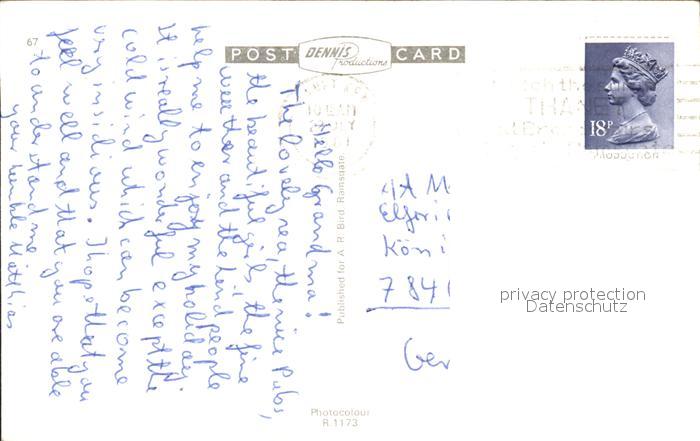 67
POST DENNIS Productions CARD
18P
THANET
Published for A. R. Bird, Ramsgate.
Hello Grandma!
The lovely sea, the nice Pubs,
the beautiful girls, the fine
weather and the kind people
help me to enjoy my holiday.
It is really wonderful except the
cold wind which can become
very insidious. I hope that you
feel well and that you are able
to understand me
your humble Matthias
Elfri
Köni
7841
Ger
privacy protection
Datenschutz
Photocolour
R.1173